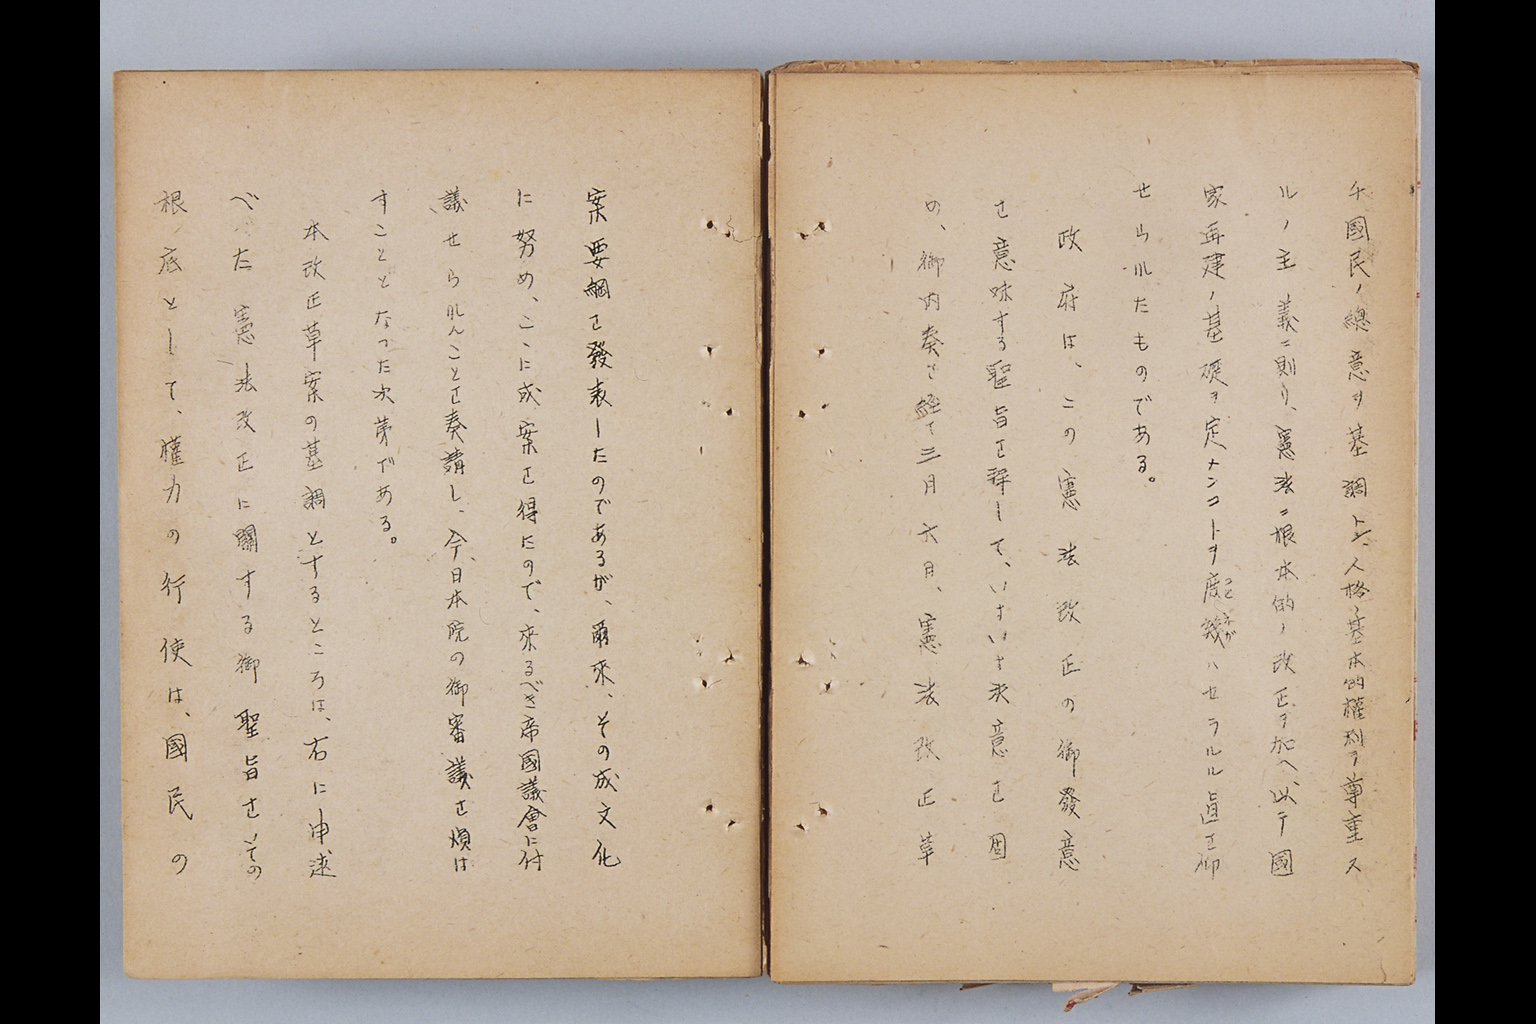 チ國民ノ總意ヲ基調トシ、人格ノ基本的權利ヲ尊重ス
ルノ主義ニ則リ、憲法ニ根本的ノ改正ヲ加ヘ、以テ國
家再建ノ基礎ヲ定メンコトヲ庶幾ハセラルル旨を御
こひ ネが
せられたものである。
政府は、この憲法改正の御發意
を意味する聖旨を拜して、いよいよ決意を固
め、御内奏を経て三月六日、憲法改正草
案要綱を發表したのであるが、爾來、その成文化
に努め、こゝに成案を得たので、來るべき帝國議會に付
議せられんことを奏請し、今日本院の御審議を煩は
すこととなつた次第である。
本改正草案の基調とするところは、右に申述
べた憲法改正に關する御聖旨をその
根底として、權力の行使は、國民の